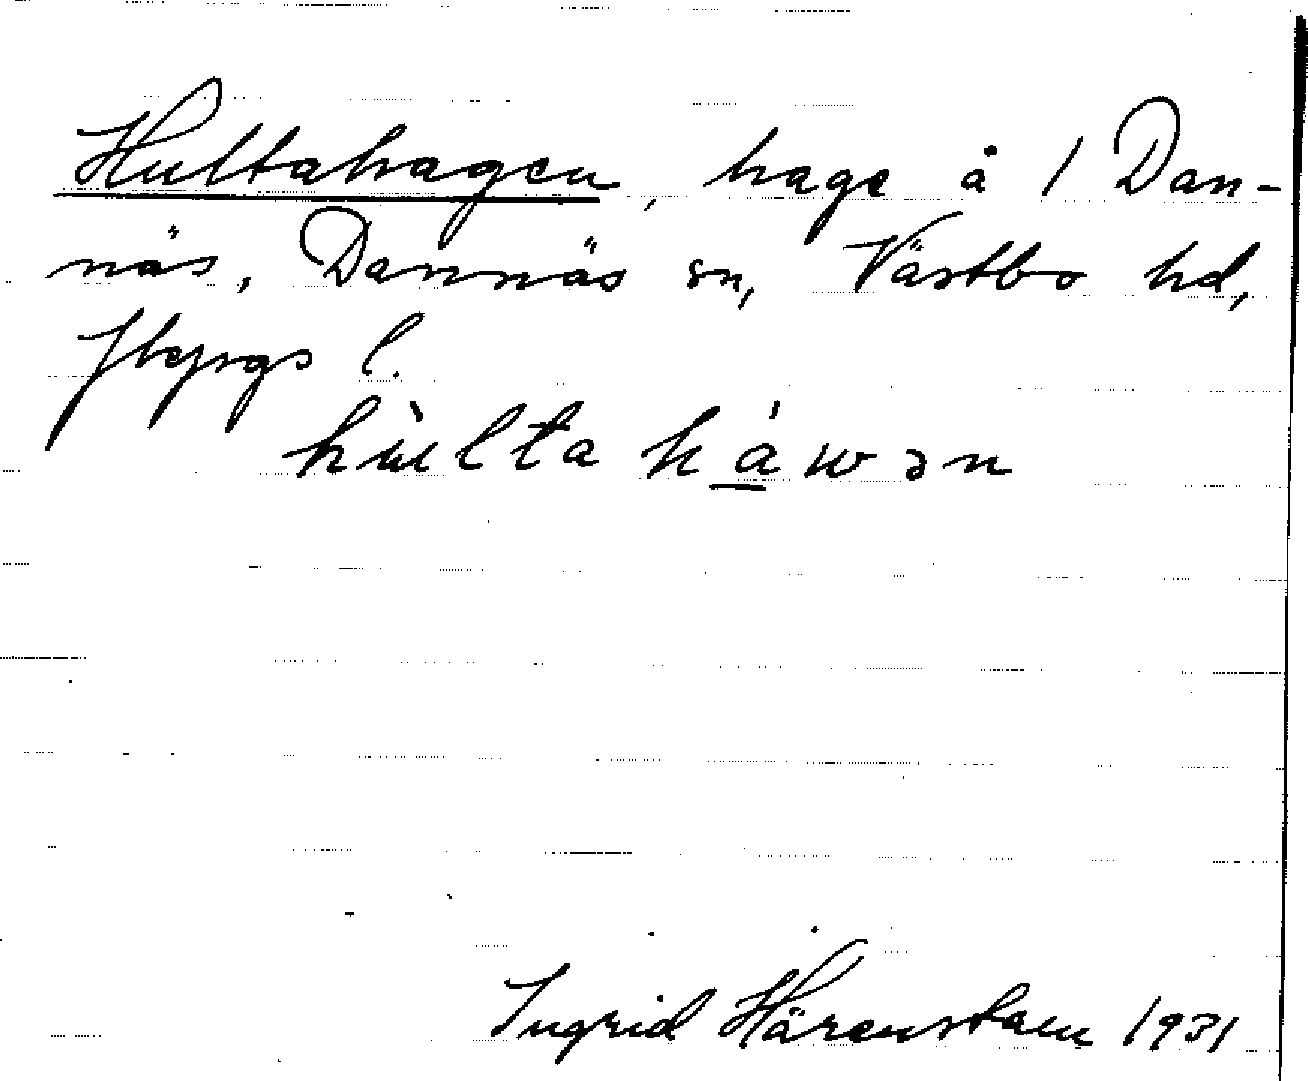 Hultahagen, hage å 1 Dan-
näs, Dannäs sn, Västbo hd,
Jkpgs l.
hùltaháwən
Ingrid Härenstam 1931